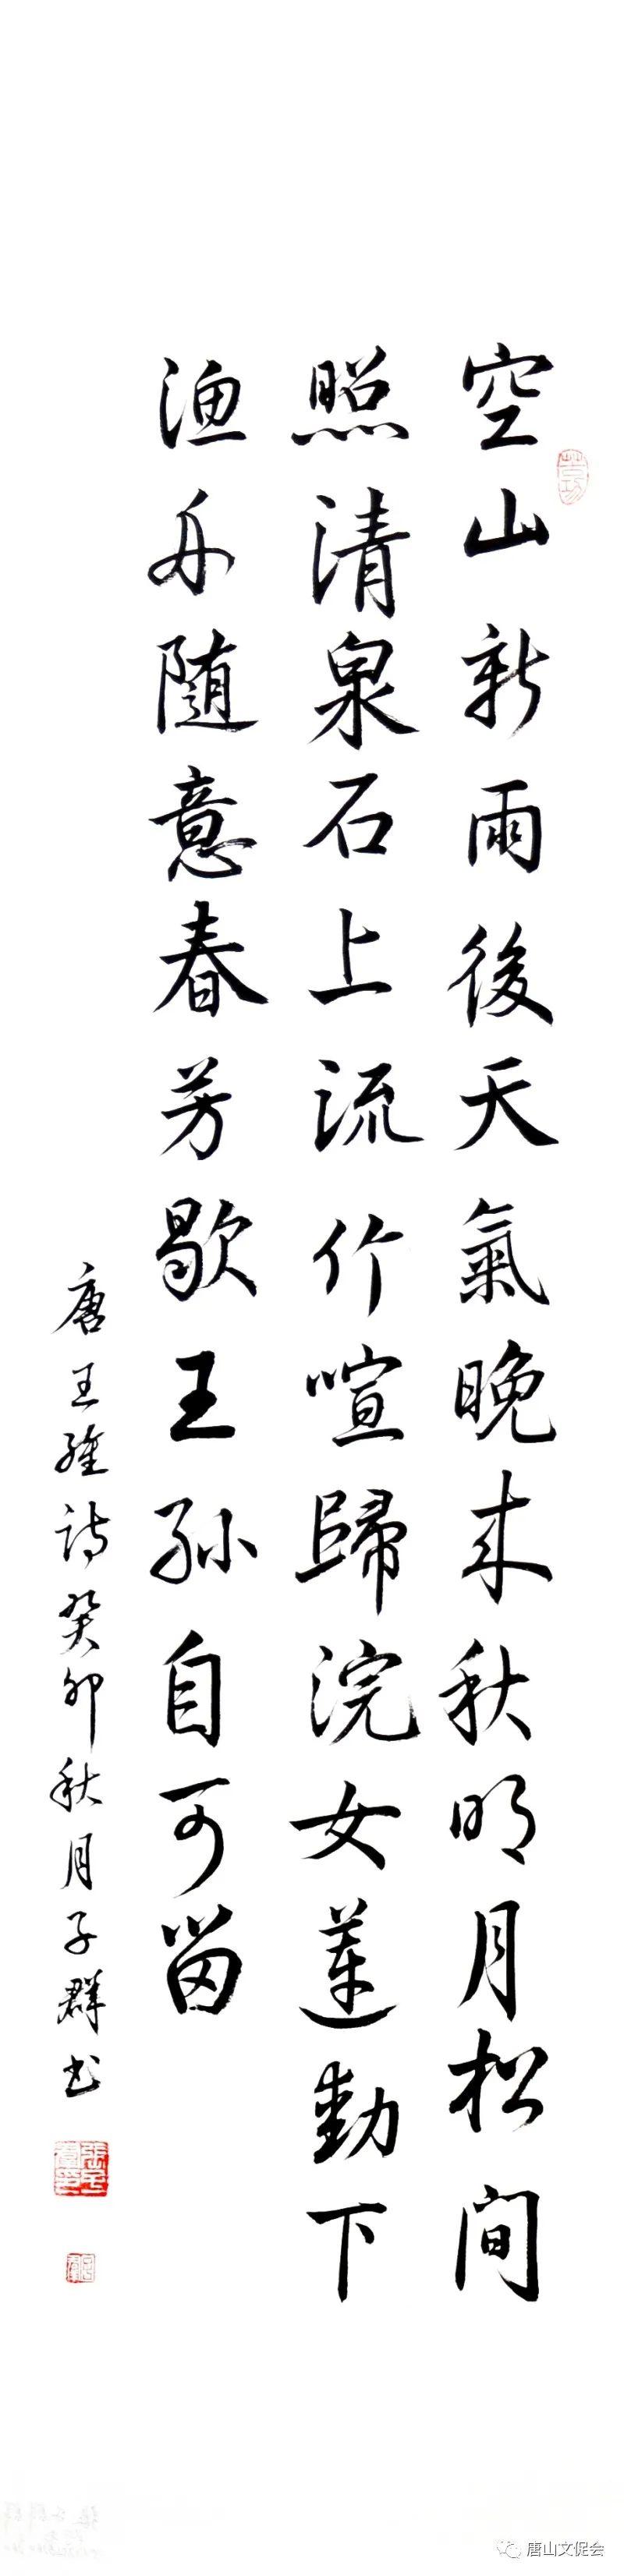 空山新雨後天氣晚来秋明月松间
照清泉石上流竹喧歸浣女蓮動下
渔舟随意春芳歇王孙自可留
唐王維诗癸卯秋月子群书
唐山文促会